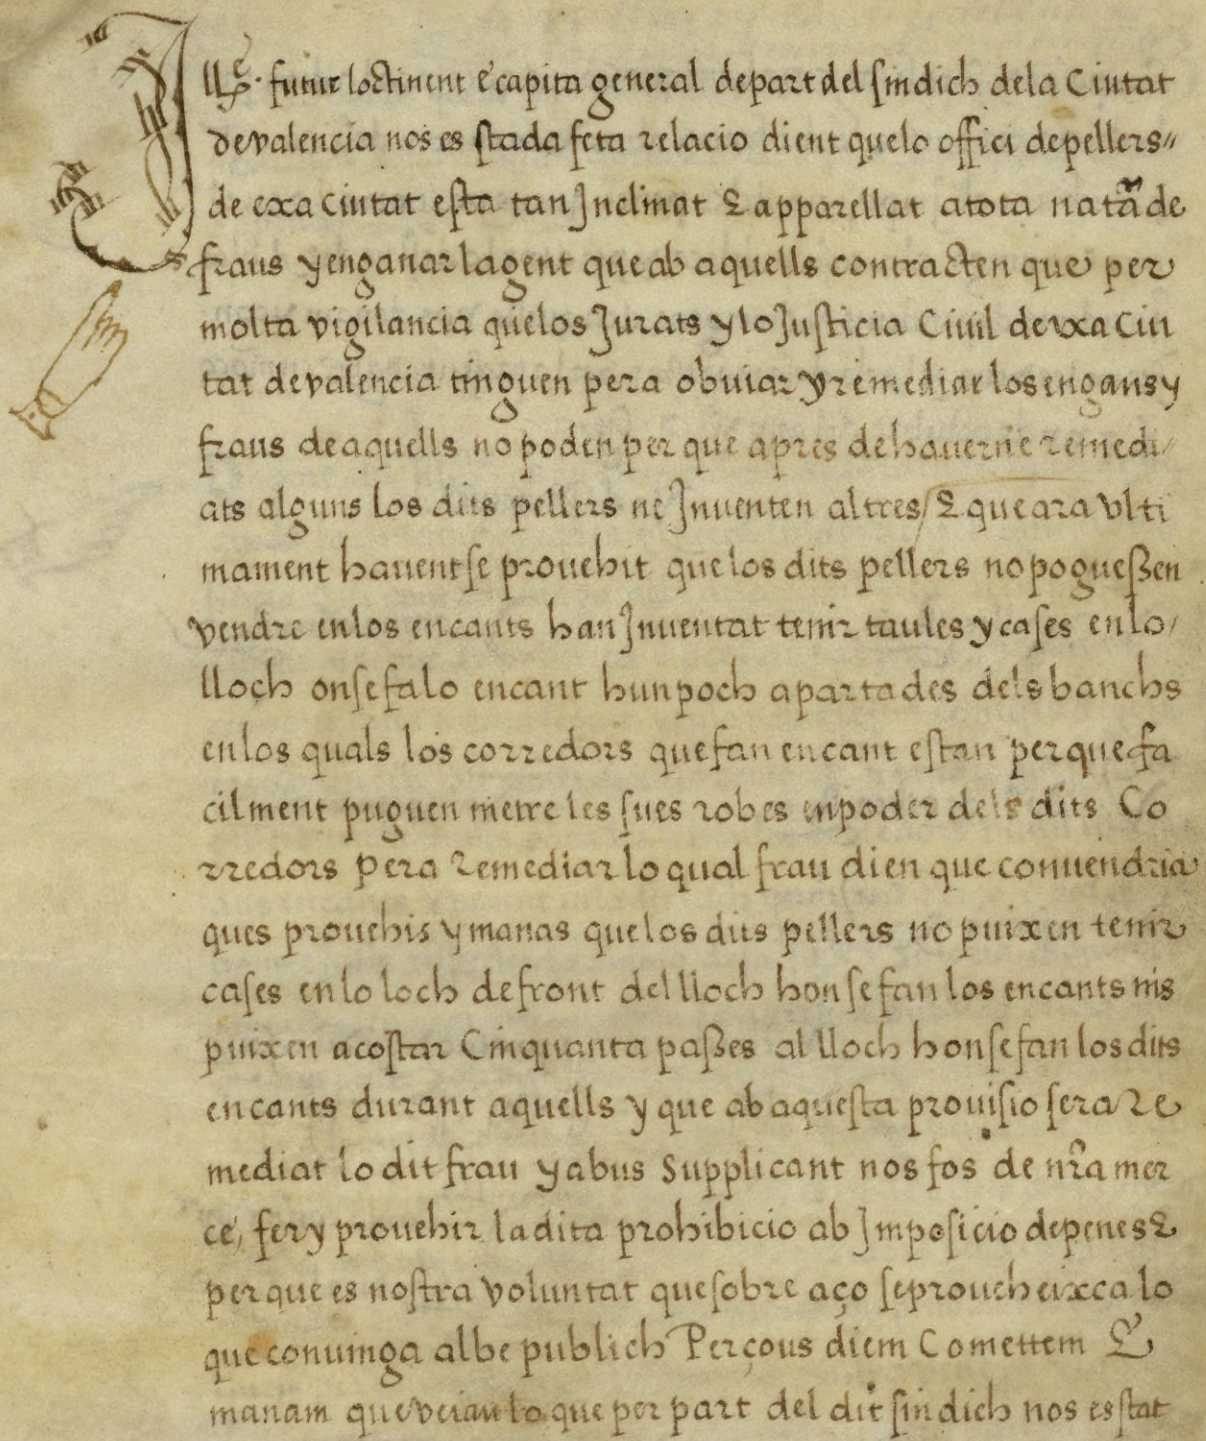 Ille. futur loctinent e capita general de part del sindich de la Ciutat
de valencia nos es stada feta relacio dient que lo offici de pellers
de exa ciutat esta tan Inclinat & apparellat a tota natā de
fraus y enganar la gent que ab aquells contracten que per
molta vigilancia que los Jurats y lo Justicia Civil de exa Ciu
tat de valencia tinguen pera obuiar y remediar los engans y
fraus de aquells no poden per que apres de hauerne remedi
ats alguns los dits pellers ne Inuenten altres / & que ara vlti
mament hauentse prouehit que los dits pellers no poguessen
vendre en los encants han Inuentat tenir taules y cases en lo
lloch on se fa lo encant hun poch apartades dels banchs
en los quals los corredors que fan encant estan per que fa
cilment puguen metre les sues robes en poder dels dits Co
rredors pera Remediar lo qual frau dien que conuendria
ques prouehis y manas que los dits pellers no puixen tenir
cases en lo loch de front del lloch hon se fan los encants nis
puixen acostar Cinquanta passes al lloch hon se fan los dits
encants durant aquells y que ab aquesta prouisio sera Re
mediat lo dit frau y abus Supplicant nos fos de nr̄a mer
ce, fer y prouehir la dita prohibicio ab Imposicio de penes &
per que es nostra voluntat que sobre aço se proueheixca lo
que conuinga al be publich Perçous diem Comettem E
manam que veiau lo que per part del dit sindich nos es stat